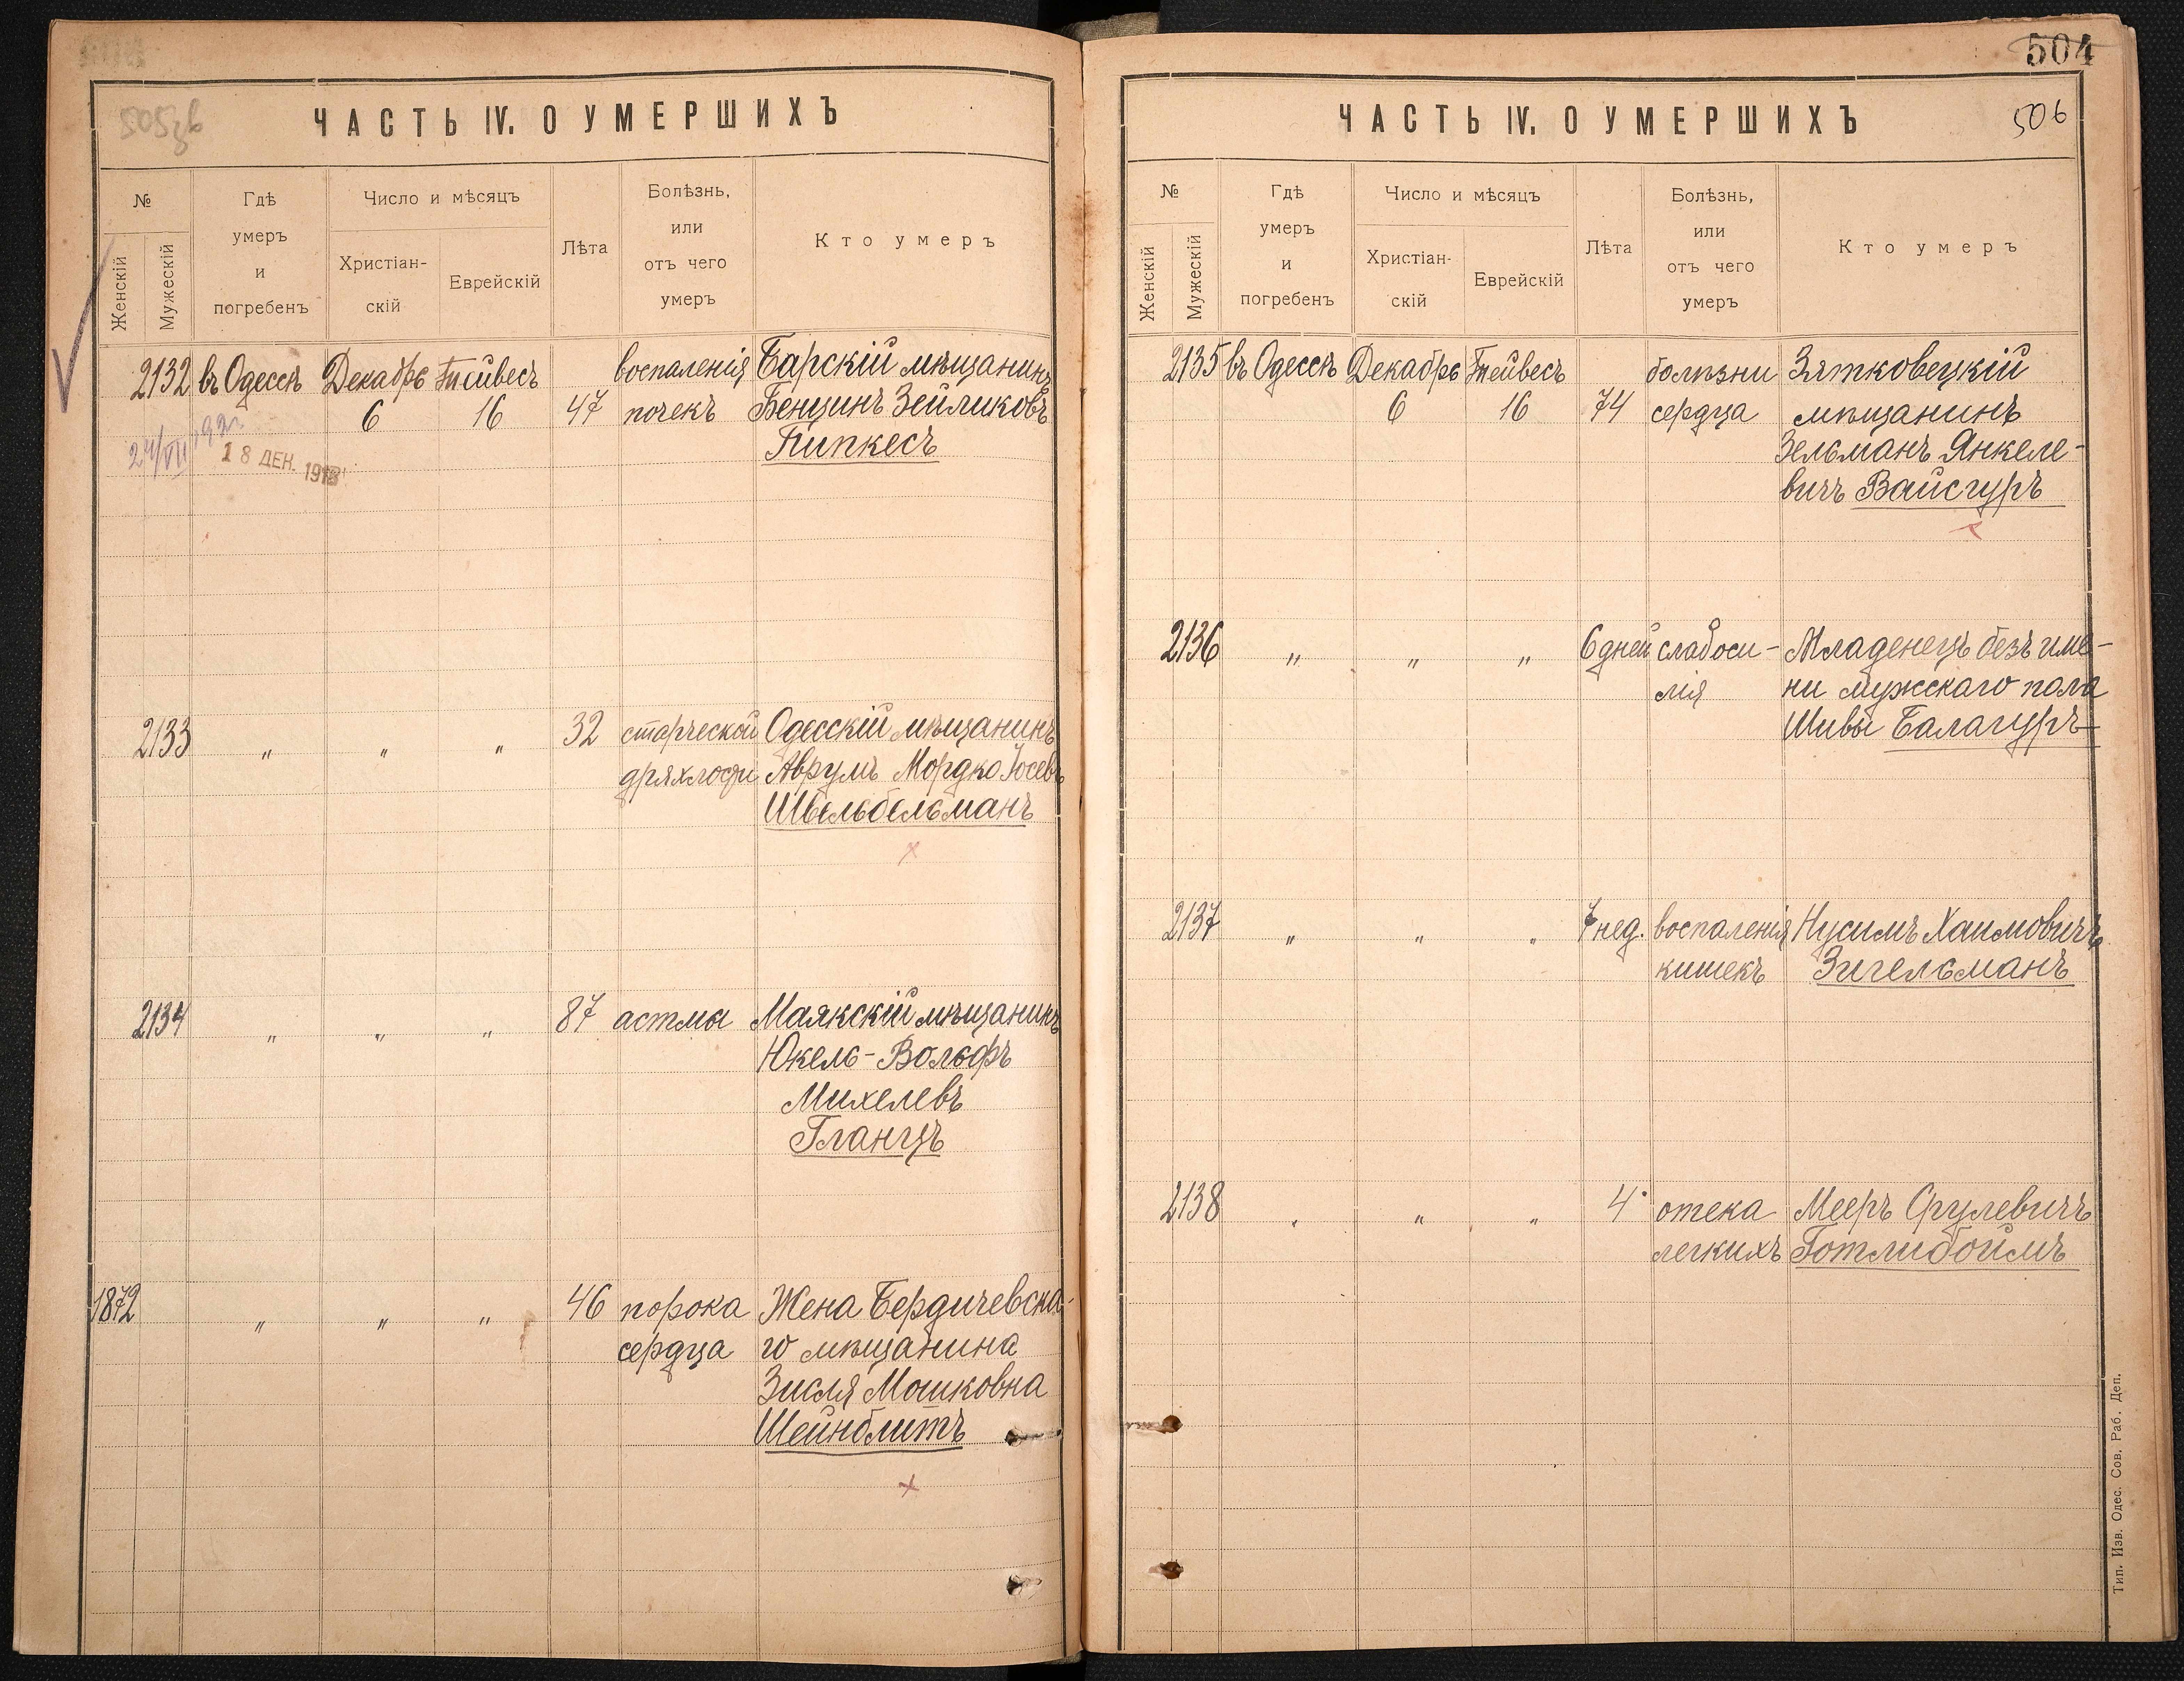 ЧАСТЬ IV. О УМЕРШИХЪ
№
Женскій
Мужескій
Гдѣ
умеръ
и
погребенъ
Число и мѣсяцъ
Христіан-
скій
Еврейскій
Лѣта
Болѣзнь,
или
отъ чего
умеръ
Кто умеръ
2132 въ Одессѣ Декабрь Тейвесъ воспаленія Барскій мѣщанинъ
6 16 47 почекъ Бенцинъ Зейликовъ
Пипкесъ
24/VII
18 ДЕК. 191
2133 " " " 32 старческой Одесскій мѣщанинъ
дряхлости Аврумъ Мордко Іосевъ
Швельбельманъ
2134 " " " 87 астма Маякскій мѣщанинъ
Юкель-Вольфъ
Михелевъ
Гланцъ
1872 " " " 46 порока Жена Бердичевска-
сердца го мѣщанина
Зисля Мошковна
Шейнблитъ
504
ЧАСТЬ IV. О УМЕРШИХЪ
506
№
Женскій
Мужескій
Гдѣ
умеръ
и
погребенъ
Число и мѣсяцъ
Христіан-
скій
Еврейскій
Лѣта
Болѣзнь,
или
отъ чего
умеръ
Кто умеръ
2135 въ Одессѣ Декабрь Тейвесъ болѣзни Зятковецкій
6 16 74 сердца мѣщанинъ
Зельманъ Янкеле-
вичъ Вайсгуръ
2136 " " " 6 дней слабоси- Младенецъ безъ име-
лія ни мужскаго пола
Шивы Балагуръ
2137 " " " 7 нед. воспаленія Нусимъ Хаимовичъ
кишекъ Зигельманъ
2138 " " " 4 отека Мееръ Срулевичъ
легкихъ Готлибоймъ
Тип. Изв. Одес. Сов. Раб. Деп.